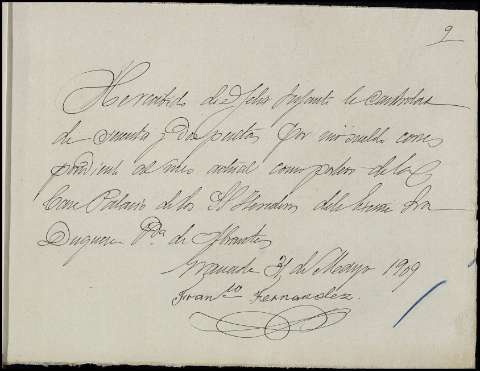 9
He recibido de D. Felix Infante la cantidad
de sesenta y dos pesetas por mi sueldo corres
pondiente al mes actual como portero de la
Casa Palacio de los Sres Herederos de la Excma Sra
Duquesa Vda de Abrantes
Granada 31 de Mayo 1909
Franco Fernandez.